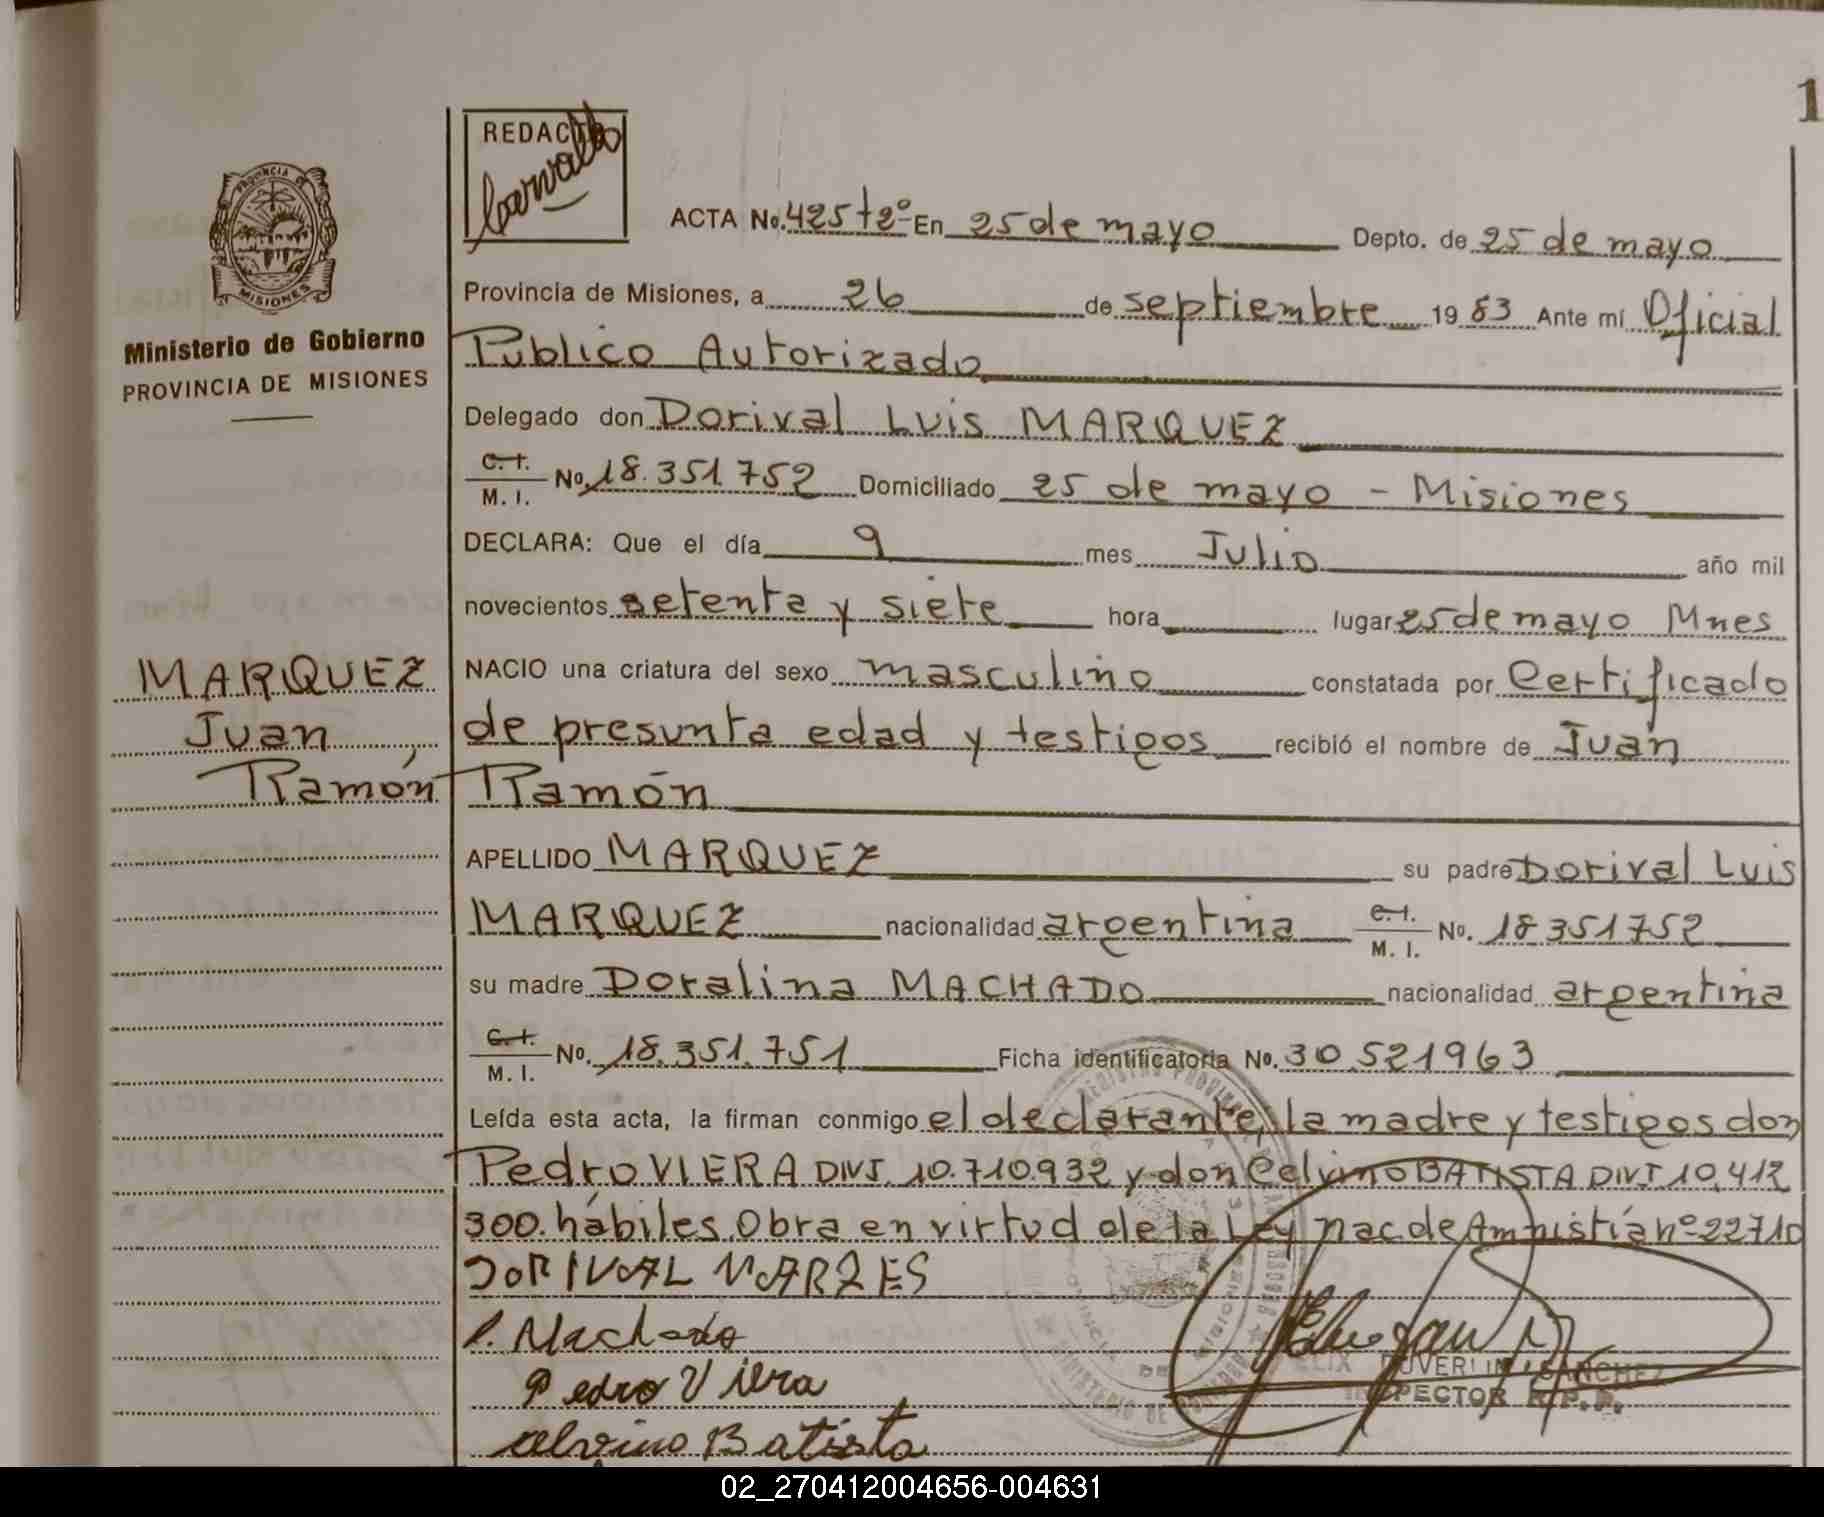 1
REDACTO
Carvallo
PROVINCIA
MISIONES
Ministerio de Gobierno
PROVINCIA DE MISIONES
ACTA No. 425 tº 2º En 25 de mayo Depto. de 25 de mayo
Provincia de Misiones, a 26 de septiembre 1983 Ante mí Oficial
Publico Autorizado
Delegado don Dorival Luis MARQUEZ
C.I.
M. I. No. 18.351.752 Domiciliado 25 de mayo - Misiones
DECLARA: Que el día 9 mes Julio año mil
novecientos setenta y siete hora lugar 25 de mayo Mnes
NACIO una criatura del sexo masculino constatada por Certificado
de presunta edad y testigos recibió el nombre de Juan
Ramón
MARQUEZ
Juan
Ramón
APELLIDO MARQUEZ su padre Dorival Luis
MARQUEZ nacionalidad argentina C.I.
M. I. No. 18.351752
su madre Doralina MACHADO nacionalidad argentina
C.I.
M. I. No. 18.351.751 Ficha identificatoria No. 30.521963
Leída esta acta, la firman conmigo el declarante, la madre y testigos don
Pedro VIERA DNI. 10.710.932 y don Celvino BATISTA DNI 10.412
300. hábiles. Obra en virtud de la Ley nac. de Amnistía nº 22710
DORIVAL MARQES
Machado
Pedro Viera
celvino Batista
SANCHEZ
INSPECTOR R.P.P.
02_270412004656-004631